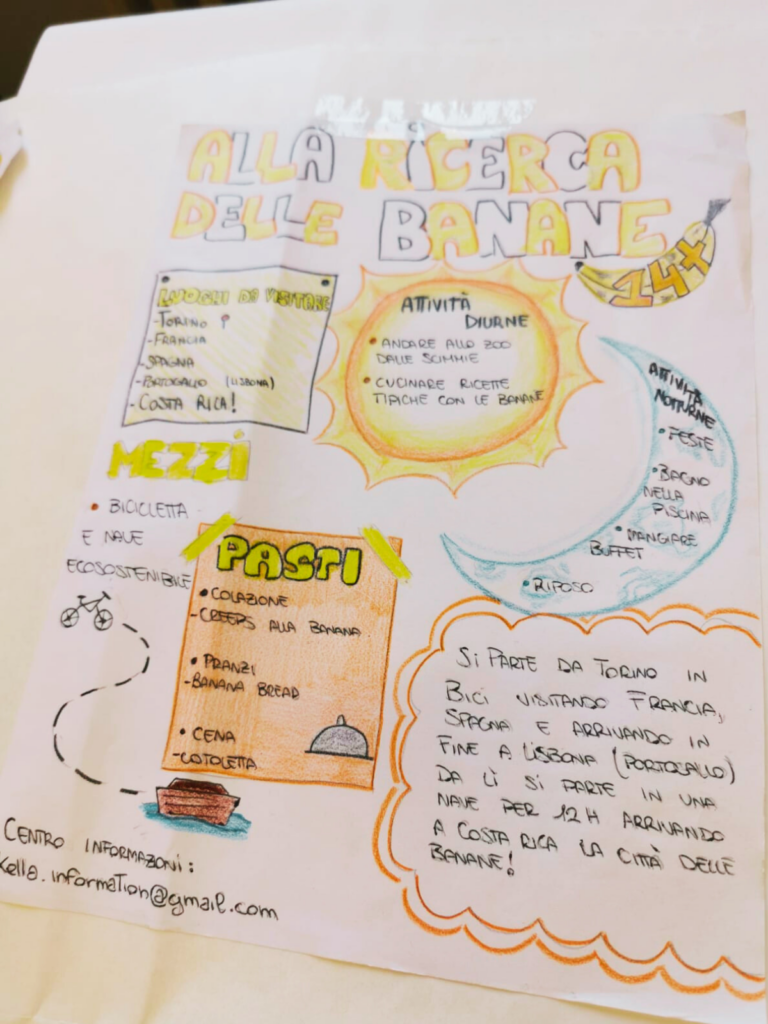 ALLA RICERCA
DELLE BANANE
14+
LUOGHI DA VISITARE
-TORINO
-FRANCIA
-SPAGNA
-PORTOGALLO (LISBONA)
- COSTA RICA!
ATTIVITÀ
DIURNE
• ANDARE ALLO ZOO
DALLE SCIMMIE
• CUCINARE RICETTE
TIPICHE CON LE BANANE
ATTIVITÀ
NOTTURNE
• FESTE
• BAGNO
NELLA
PISCINA
• MANGIARE
BUFFET
• RIPOSO
MEZZI
• BICICLETTA
E NAVE
ECOSOSTENIBILE
PASTI
• COLAZIONE
- CREEPS ALLA BANANA
• PRANZI
- BANANA BREAD
• CENA
- COTOLETTA
SI PARTE DA TORINO IN
BICI VISITANDO FRANCIA,
SPAGNA E ARRIVANDO IN
FINE A LISBONA (PORTOGALLO)
DA LÌ SI PARTE IN UNA
NAVE PER 12H ARRIVANDO
A COSTA RICA LA CITTÀ DELLE
BANANE!
CENTRO INFORMAZONI:
Kella.information@gmail.com